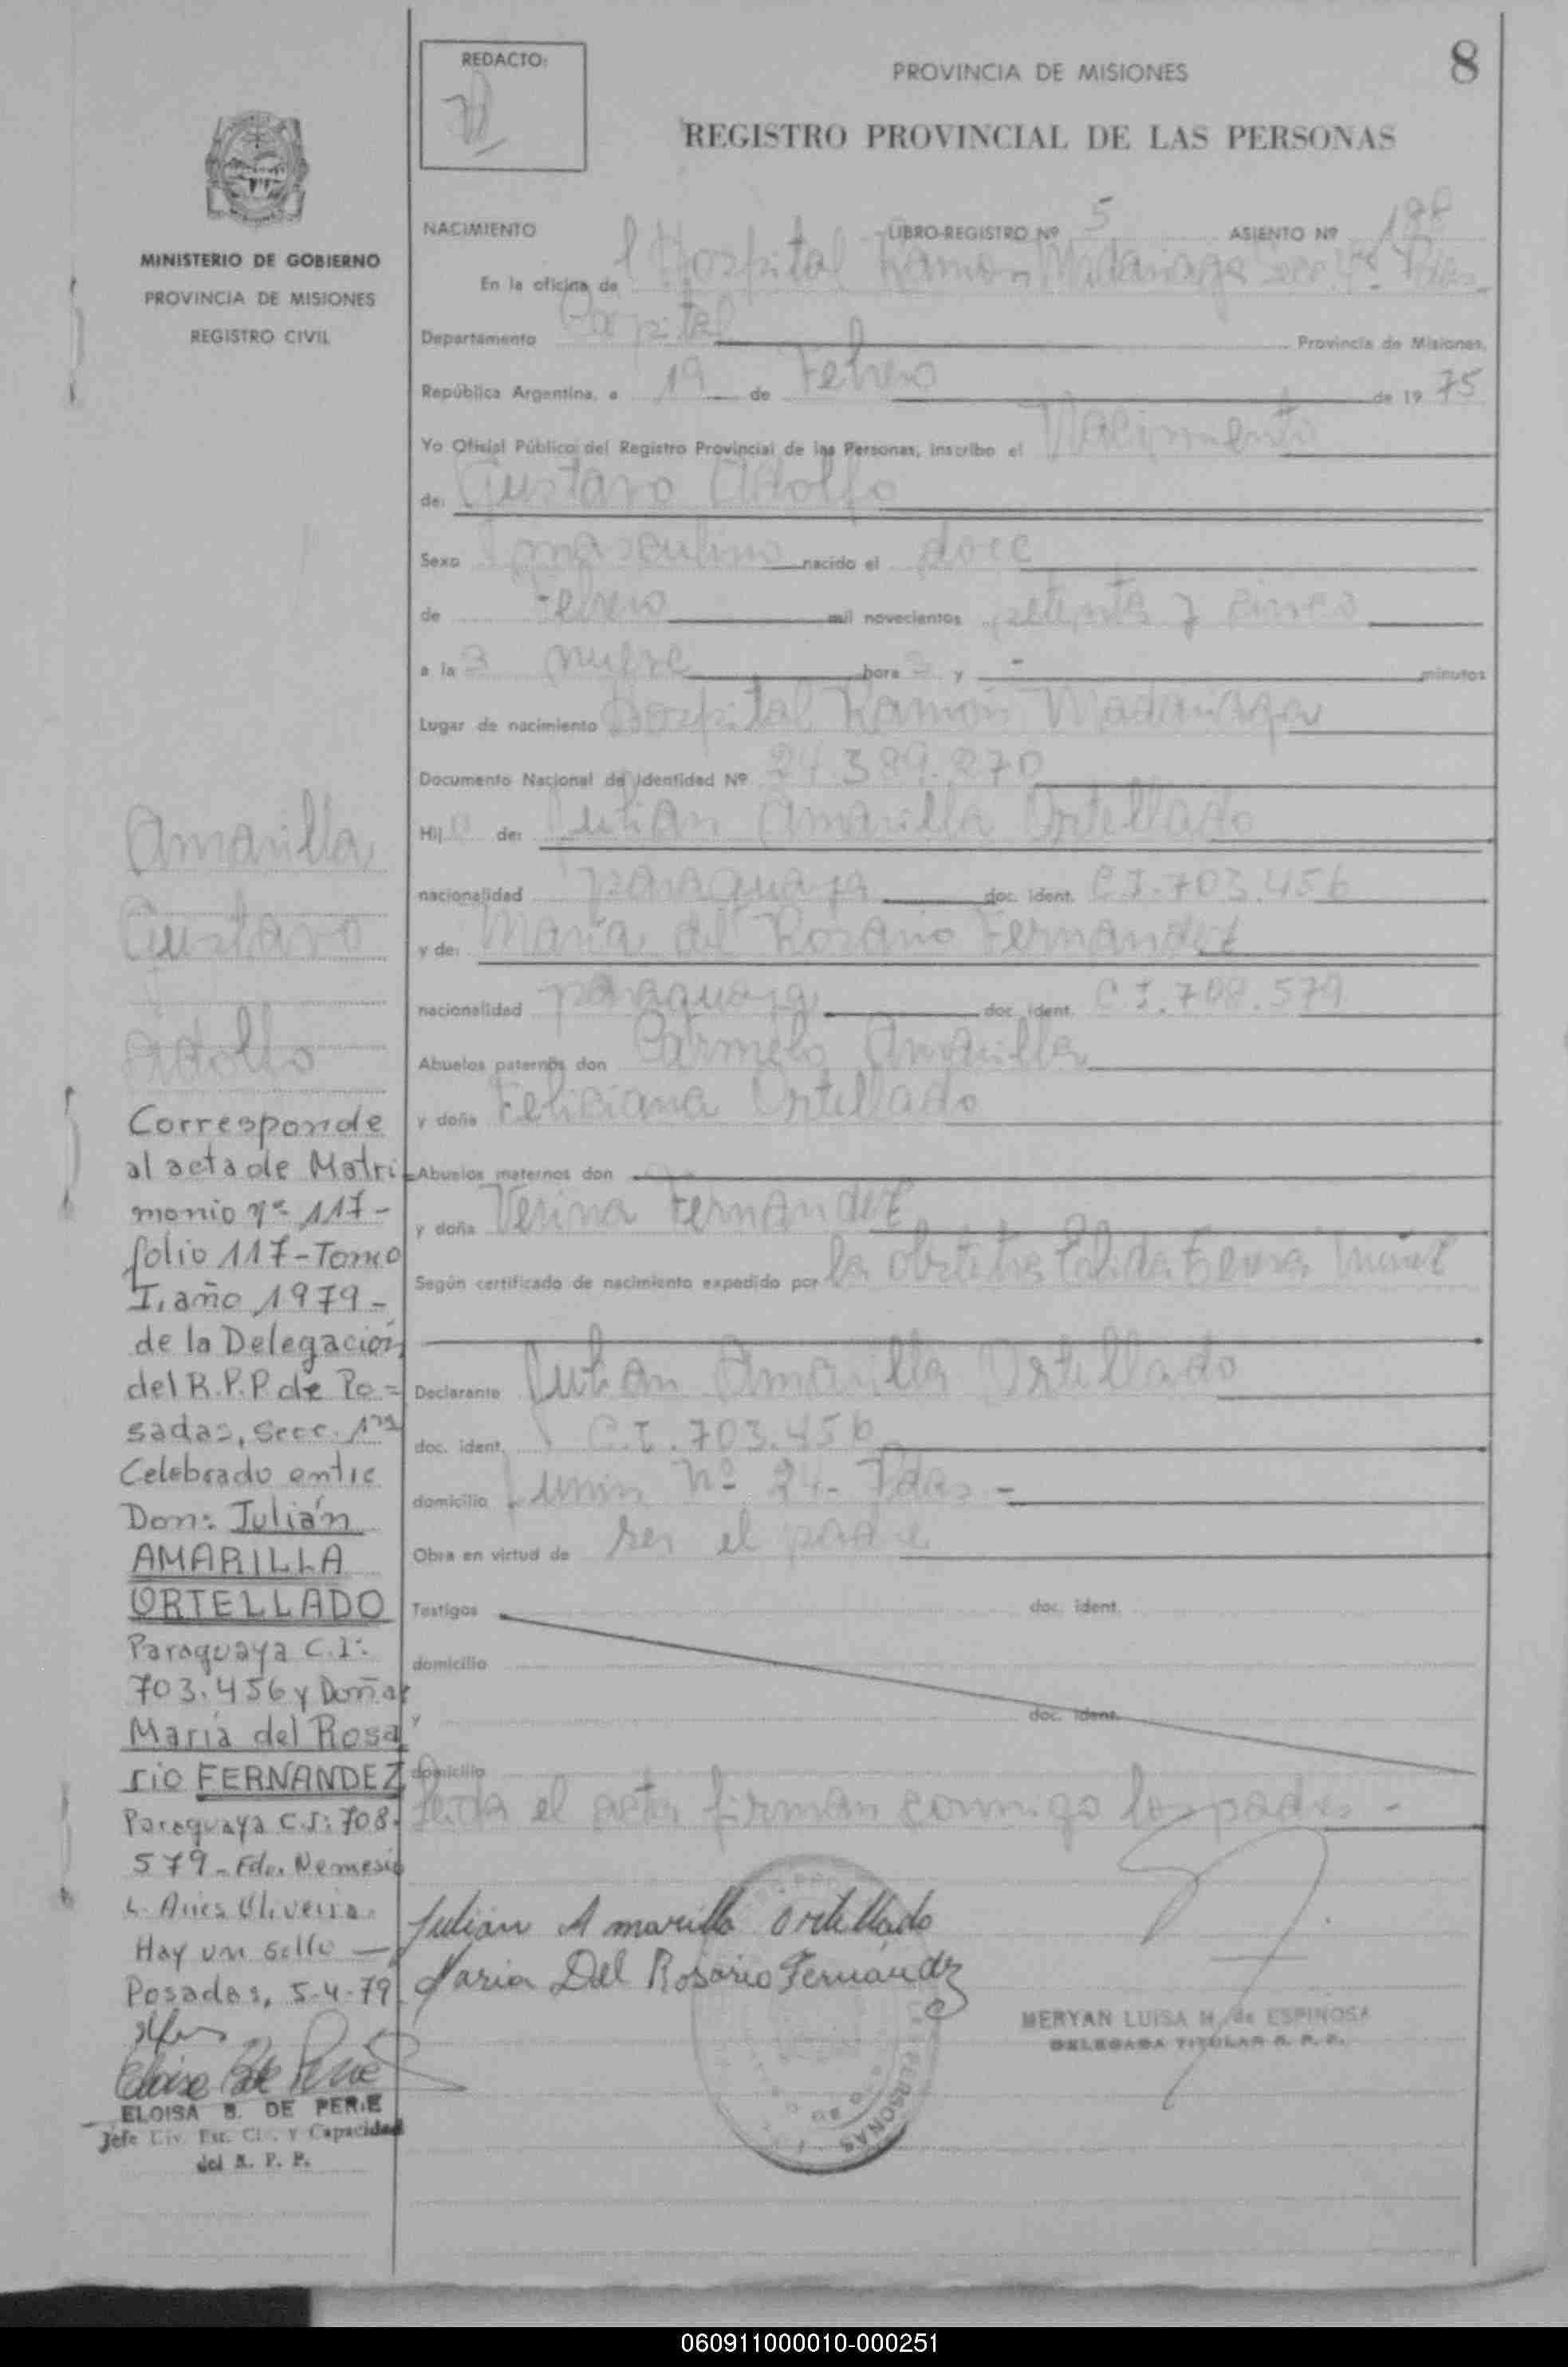 8
REDACTO:
PROVINCIA DE MISIONES
REGISTRO PROVINCIAL DE LAS PERSONAS
MINISTERIO DE GOBIERNO
PROVINCIA DE MISIONES
REGISTRO CIVIL
NACIMIENTO LIBRO-REGISTRO Nº 5 ASIENTO Nº
En la oficina de Hospital Ramón Madariaga
Departamento Capital Provincia de Misiones,
República Argentina, a 19 de Febrero de 1975
Yo Oficial Público del Registro Provincial de las Personas, inscribo el Nacimiento
de: Gustavo Adolfo
Sexo masculino nacido el doce
de Febrero mil novecientos setenta y cinco
a la s nueve hora s y - minutos
Lugar de nacimiento Hospital Ramón Madariaga
Documento Nacional de Identidad Nº 24.389.270
Hijo de: Julián Amarilla Ortellado
nacionalidad paraguaya doc. ident. C I. 703.456
y de: María del Rosario Fernandez
nacionalidad paraguaya doc. ident. C I. 708.579
Abuelos paternos don Carmelo Amarilla
y doña Feliciana Ortellado
Abuelos maternos don
y doña Verina Fernandez
Según certificado de nacimiento expedido por la obstetra
Declarante Julián Amarilla Ortellado
doc. ident. C.I. 703.456
domicilio Junin Nº 24- Pdas -
Obra en virtud de ser el padre
Testigos doc. ident.
domicilio
y doc. ident.
domicilio
Leida el acta firman conmigo los padres -
Julian Amarilla Ortellado
Maria Del Rosario Fernández
MERYAN LUISA M. de ESPINOSA
DELEGADA TITULAR R. P. P.
PERSONAS
Amarilla
Gustavo
Adolfo
Corresponde
al acta de Matri
monio nº 117-
folio 117-Tomo
I, año 1979-
de la Delegación
del R.P.P. de Po=
sadas, Secc. 1ra
Celebrado entre
Don: Julián
AMARILLA
ORTELLADO
Paraguaya C.I:
703.456 y Doña:
María del Rosa
rio FERNANDEZ
Paraguaya C.I: 708.
579- Fdo. Nemesio
Hay un sello —
Posadas, 5-4-79.
ELOISA B. DE PERIE
Jefe Div. Est. Civ. y Capacidad
del R. P. P.
060911000010-000251